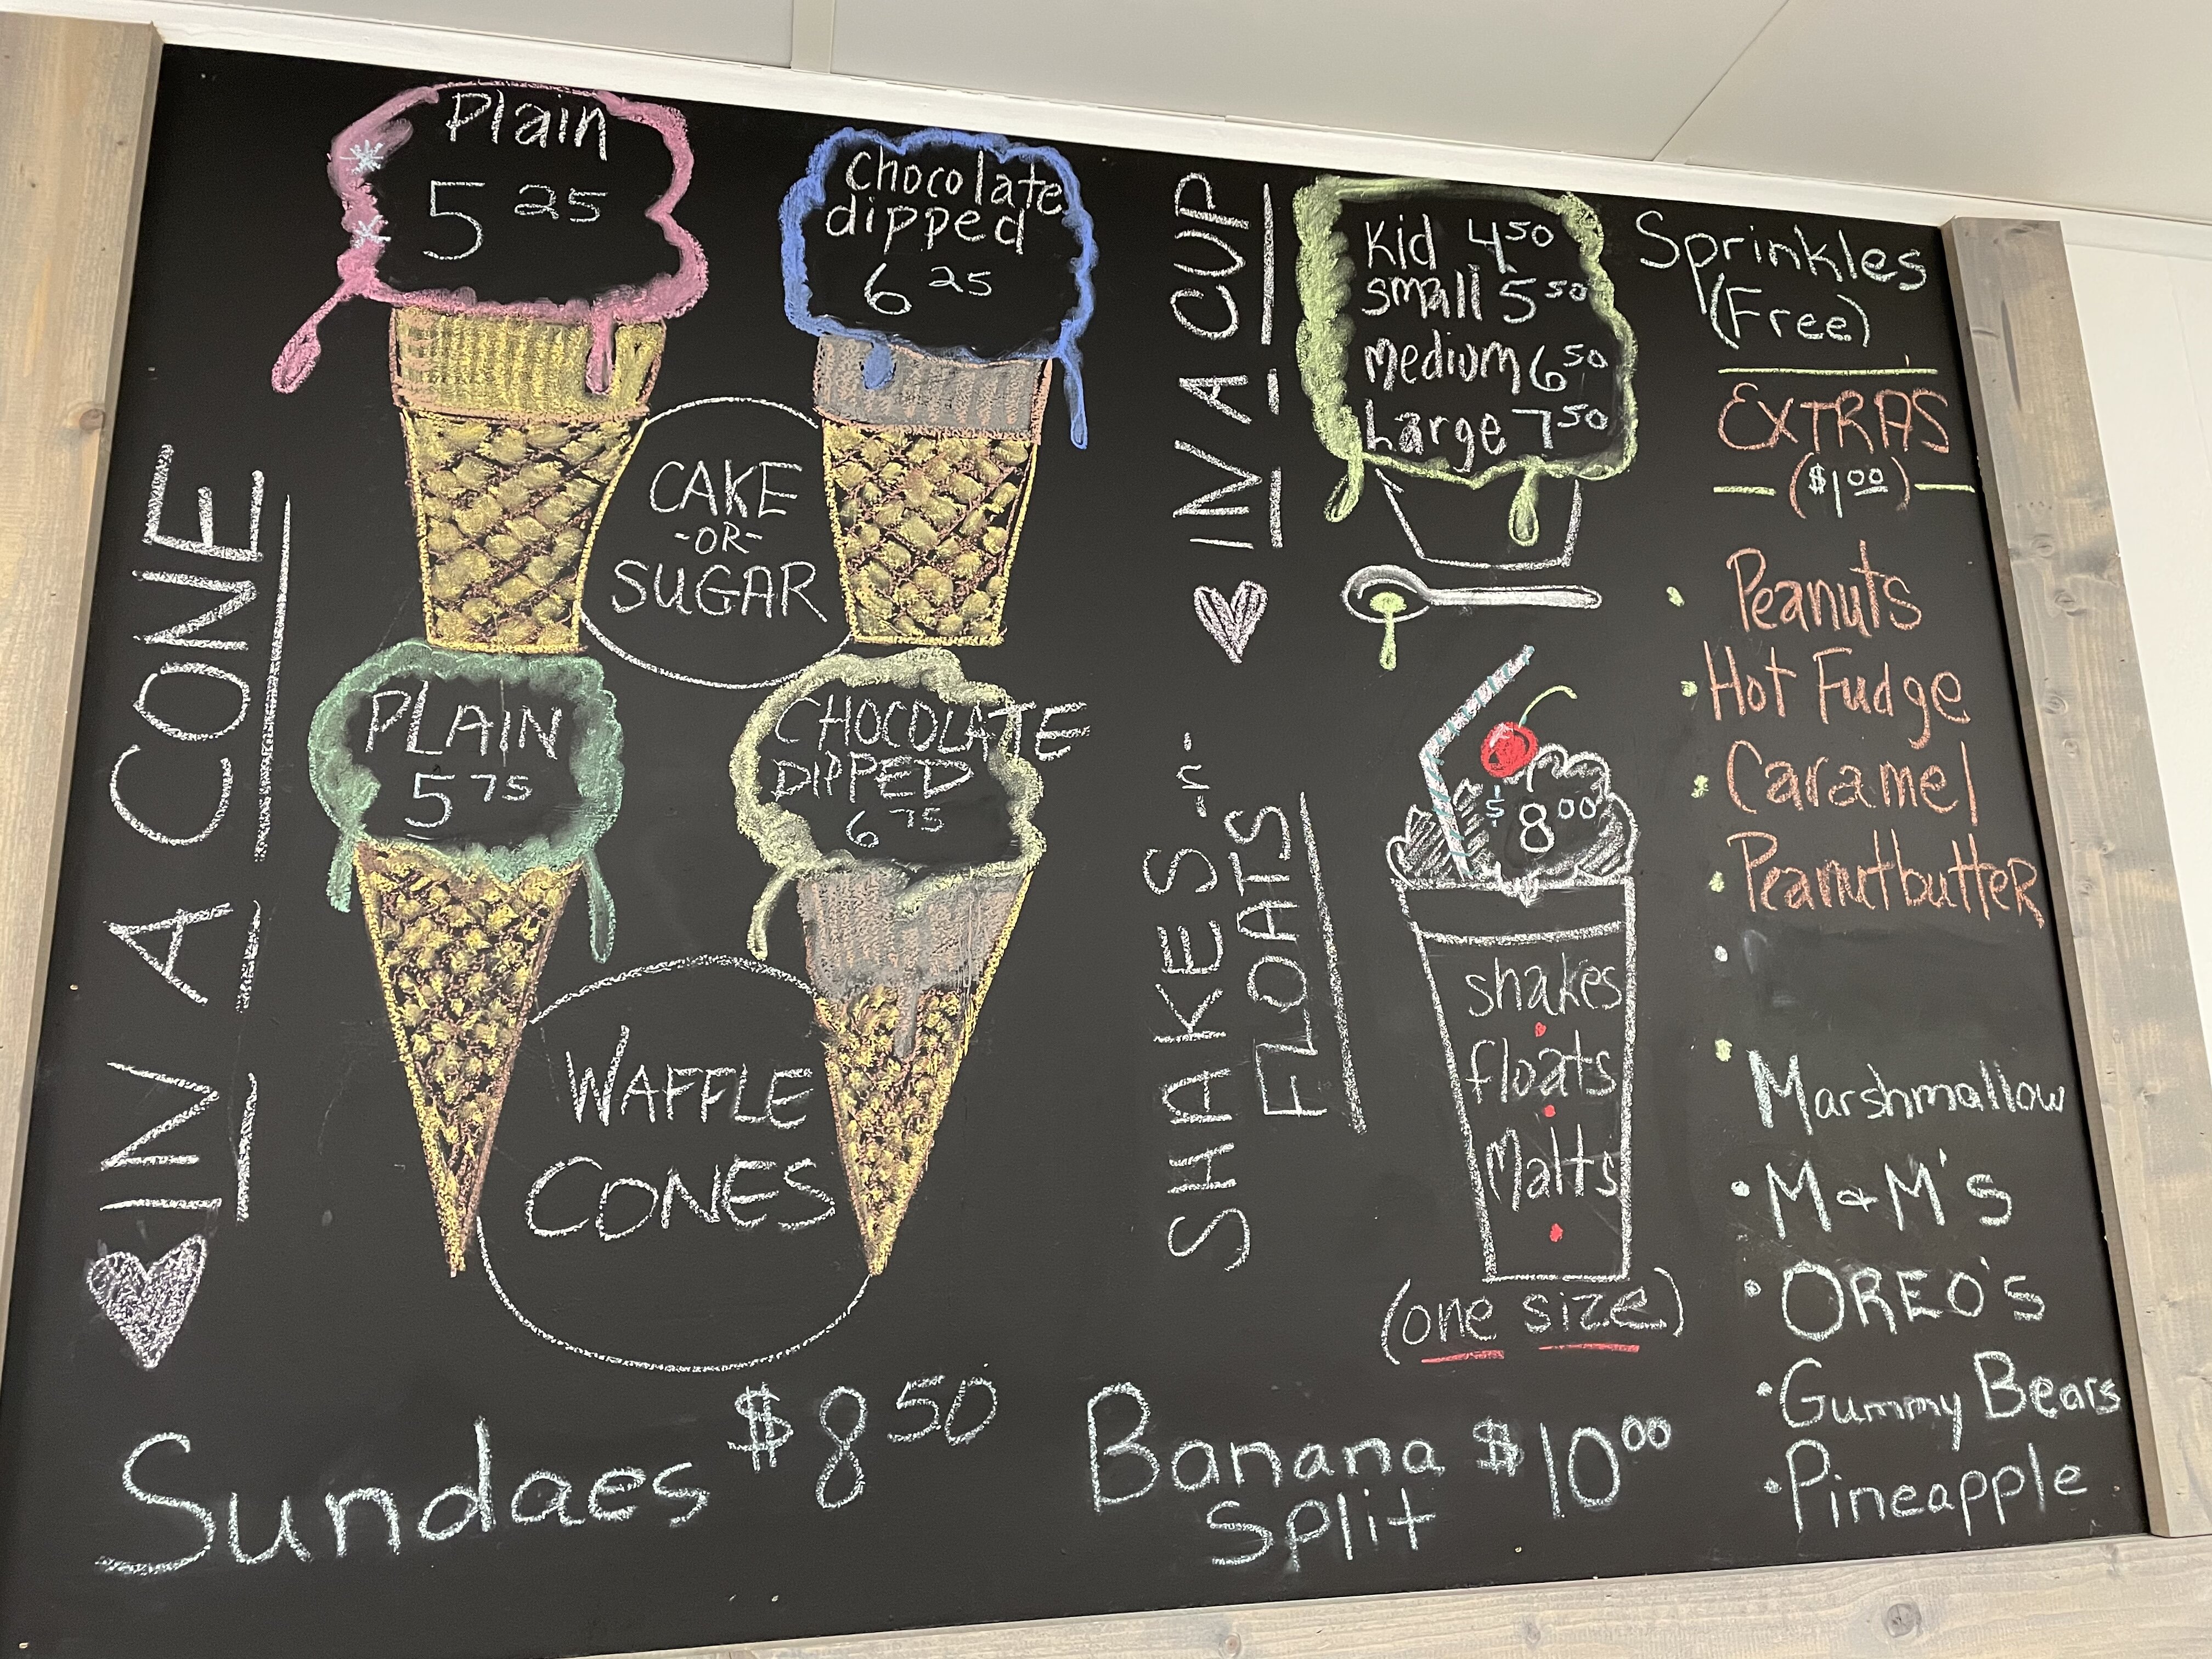 IN A CONE
Plain
5 25
chocolate
dipped
6 25
CAKE
-OR-
SUGAR
PLAIN
5 75
CHOCOLATE
DIPPED
6 75
WAFFLE
CONES
IN A CUP
Kid 4 50
small 5 50
medium 6 50
Large 7 50
SHAKES -n-
FLOATS
$8 00
shakes
floats
Malts
(one size)
Sprinkles
(Free)
EXTRAS
($1 00)
Peanuts
Hot Fudge
Caramel
PeanutbutteR
Marshmallow
• M&M's
• OREO'S
• Gummy Bears
• Pineapple
Sundaes $8 50
Banana $10 00
Split